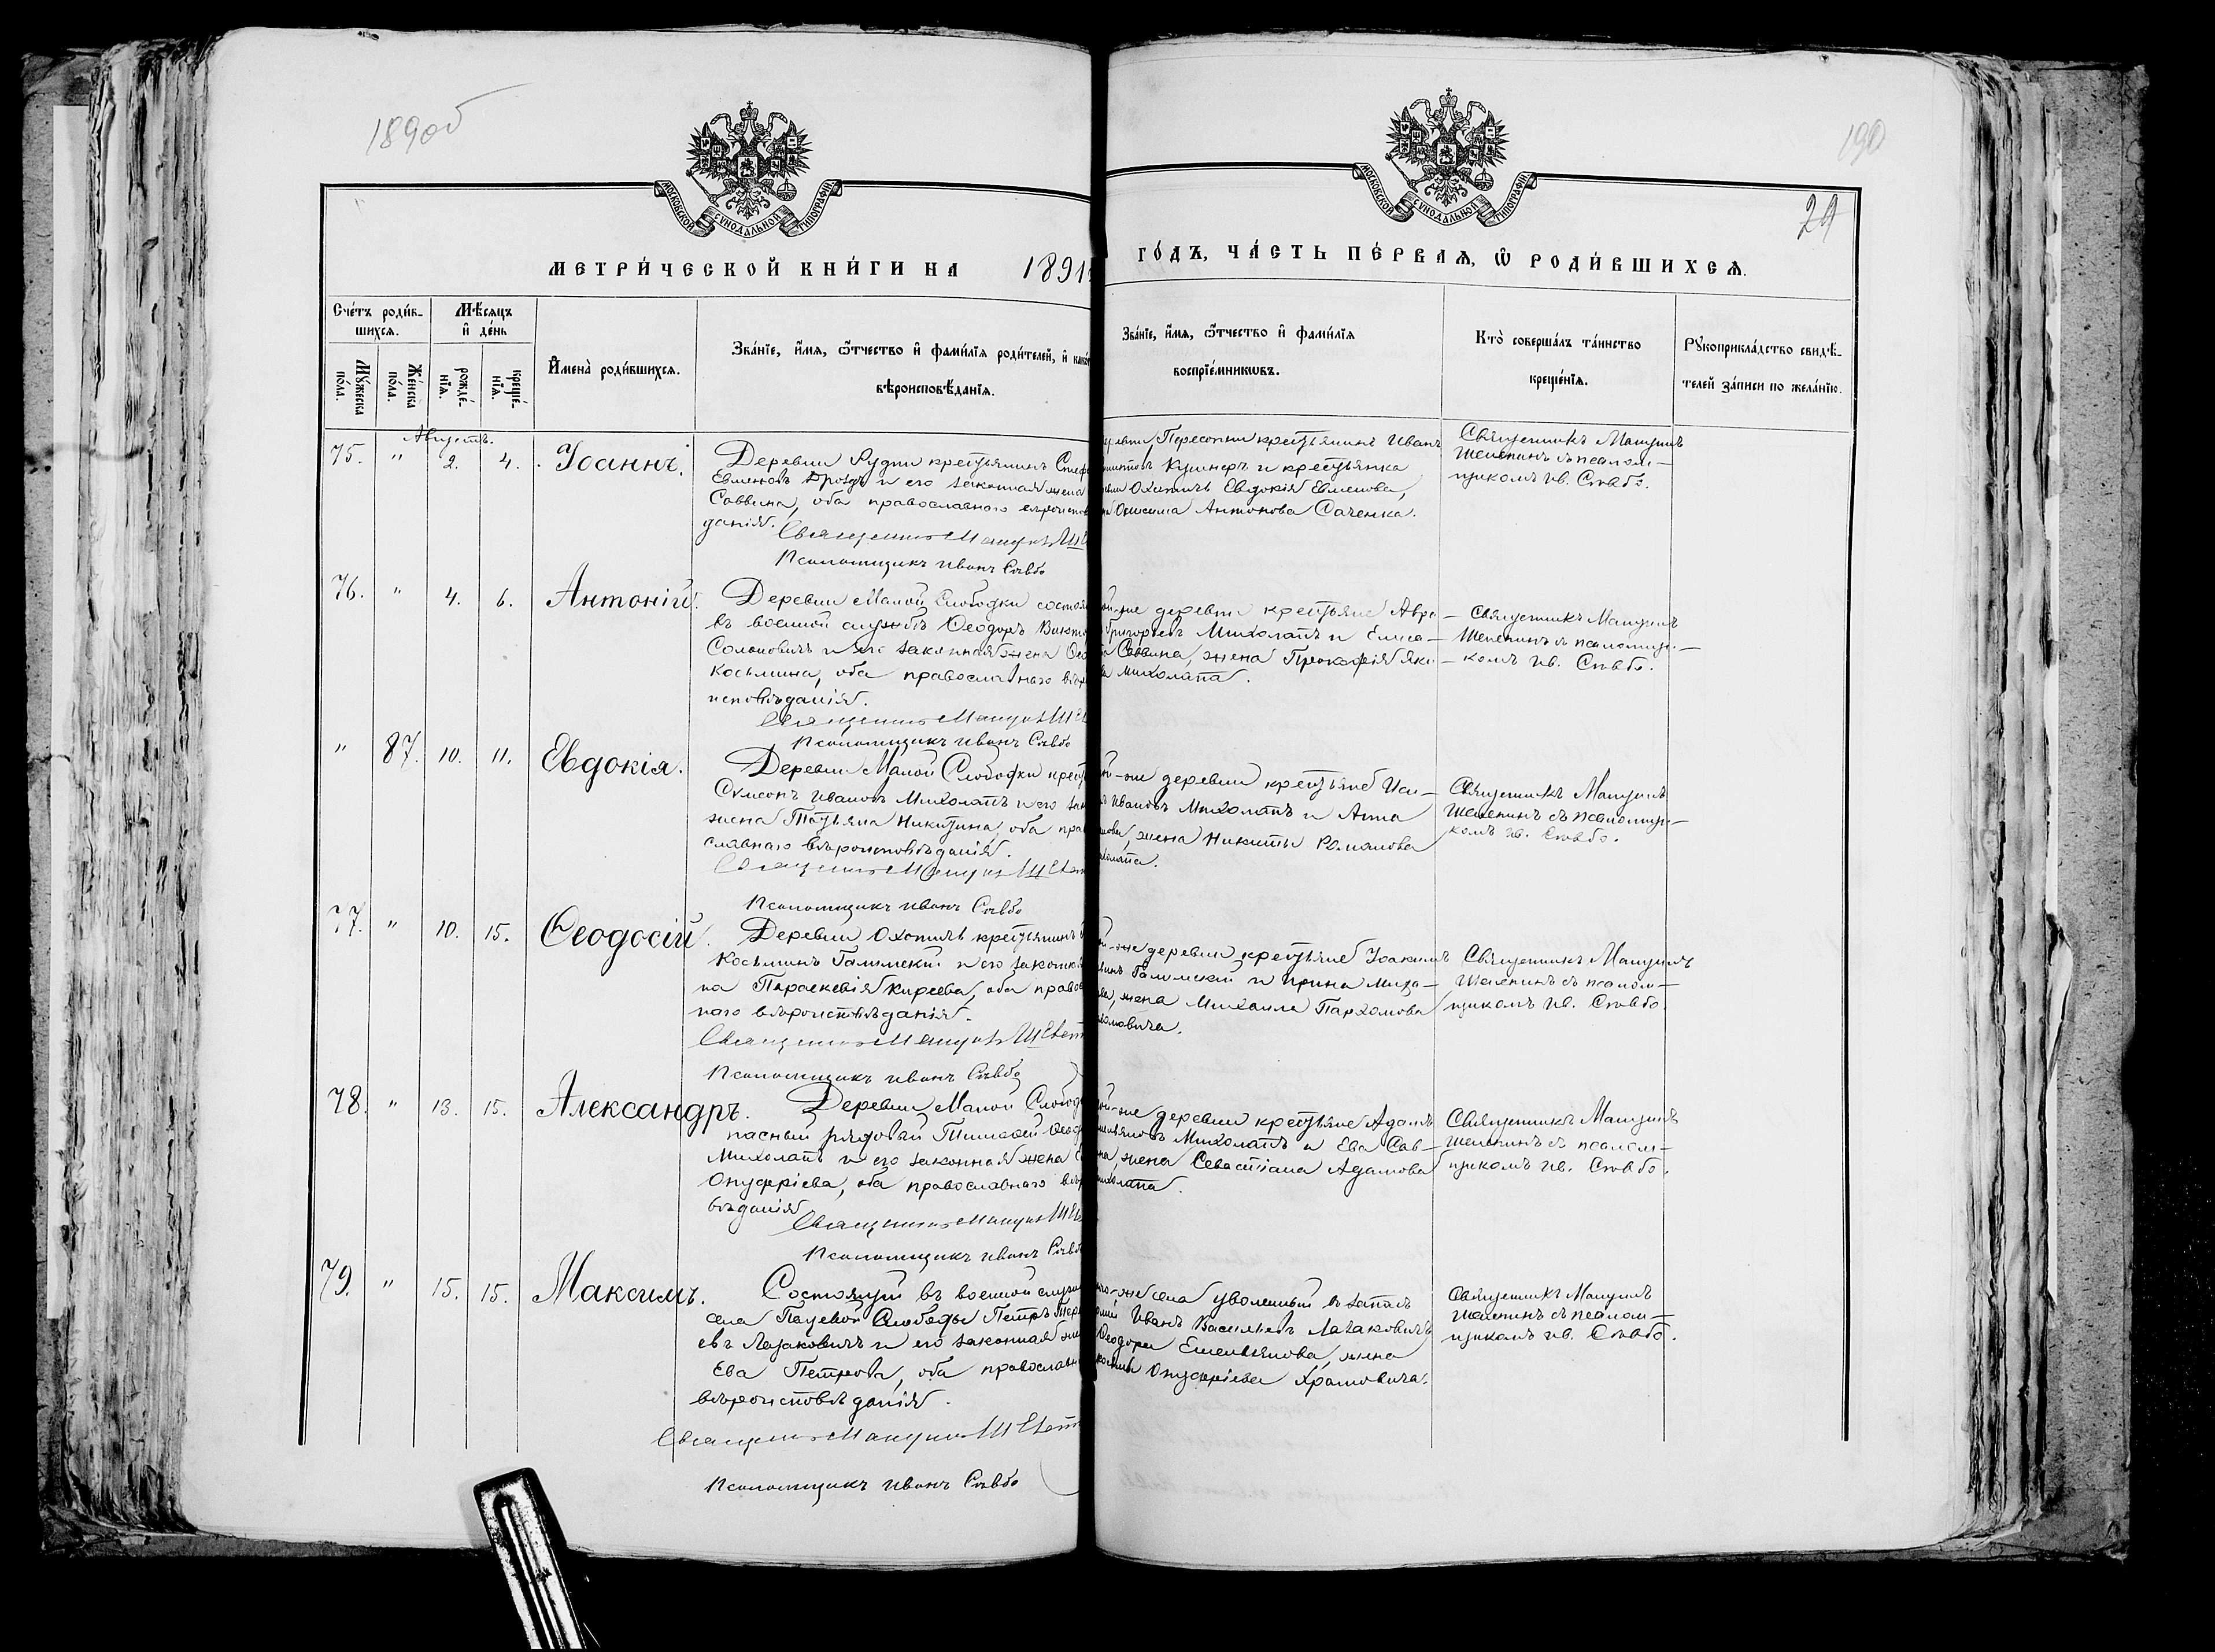 1890б
190
24
МОСКОВСКОЙ СѴНОДАЛЬНОЙ ТИПОГРАФІИ
МОСКОВСКОЙ СѴНОДАЛЬНОЙ ТИПОГРАФІИ
МЕТРИ́ЧЕСКОЙ КНИ́ГИ НА 1891
ГО́ДЪ, ЧА́СТЬ ПЕ́РВАЯ, Ѡ РОДИ́ВШИХСЯ.
Сче́тъ роди́в-
шихся.
Мꙋ́жеска по́ла.
Же́нска по́ла.
Мѣ́сяцъ и де́нь
рожде́-
нїя.
креще́-
нїя.
Имена̀ роди́вшихся.
Зва́нїе, и́мя, ѻ́тчество и фами́лїя роди́телей, и како
вѣроисповѣ́данїя.
Зва́нїе, и́мя, ѻ́тчество и фами́лїя
воспрїе́мникѡвъ.
Кто̀ соверша́лъ та́инство
креще́нїя.
Рꙋкоприкла́дство свидѣ́-
телей за́писи по жела́нїю.
Августъ.
75. " 2. 4. Іоаннъ.
Деревни Рудни крестьянинъ Стеф
Евменовъ Дроздъ и его законная жена
Саввина, оба православнаго вѣроиспов
данія.
Священникъ Мануилъ Ше
Псаломщикъ Иванъ Сѣвбо
Пересопни крестьянинъ Иванъ
Кушнеръ и крестьянка
Охотичъ Евдокія Евменова,
Онисима Антонова Саченка.
Священникъ Мануилъ
Шелепинъ съ псалом-
щикомъ Ив. Сѣвбо.
76. " 4. 6. Антоній.
Деревни Малой Слободки состоя
въ военной службѣ Ѳеодоръ
Соломовичъ и его законная жена Ѳео
Косьмина, оба православнаго вѣро
исповѣданія.
Священникъ Мануилъ Ше
Псаломщикъ Иванъ Сѣвбо
ой-же деревни крестьяне Авра-
Григорьевъ Михолапъ и Елиса-
Саввина, жена Прокофія Яко-
ва Михолапа.
Священникъ Мануилъ
Шелепинъ съ псаломщи-
комъ Ив. Сѣвбо.
" 87. 10. 11. Евдокія.
Деревни Малой Слободки крест
Сѵмеонъ Ивановъ Михолапъ и его зак
жена Татьяна Никитина, оба прав
славнаго вѣроисповѣданія.
Священникъ Мануилъ Шеле
Псаломщикъ Иванъ Сѣвбо
ой-же деревни крестьяне Иси-
Ивановъ Михолапъ и Анна
жена Никиты Романова
холапа.
Священникъ Мануилъ
Шелепинъ съ псаломщи-
комъ Ив. Сѣвбо.
77. " 10. 15. Ѳеодосій.
Деревни Охотичъ крестьянинъ
Косьминъ Галимскій и его законная
на Параскевія Киреева, оба правос
наго вѣроисповѣданія.
Священникъ Мануилъ Шеле
Псаломщикъ Иванъ Сѣвбо
ой-же деревни крестьяне Іоакимъ
Галимскій и Ирина Миха-
жена Михаила Пархомова
Священникъ Мануилъ
Шелепинъ съ псалом-
щикомъ Ив. Сѣвбо.
78. " 13. 15. Александръ.
Деревни Малой Слобод
пасный рядовой Тимофей Ѳеод
Михолапъ и его законная жена
Онуфріева, оба православнаго вѣр
вѣданія
Священникъ Мануилъ Ше
Псаломщикъ Иванъ Сѣвбо
ой-же деревни крестьяне Адамъ
Михолапъ и Ева Сав-
на, жена Севастіана Адамова
Михолапа.
Священникъ Мануилъ
Шелепинъ съ псалом-
щикомъ Ив. Сѣвбо.
79. " 15. 15. Максимъ.
Состоящій въ военной служ
села Пацевой Слободы Петръ
евъ Лазаковичъ и его законная же
Ева Петрова, оба православн
вѣроисповѣданія.
Священникъ Мануилъ Шеле
Псаломщикъ Иванъ Сѣвбо
го-же села уволенный въ запасъ
Иванъ Васильевъ Лазаковичъ
Ѳеодора Емельянова, жена
Онуфріева Храмовича.
Священникъ Мануилъ
Шелепинъ съ псалом-
щикомъ Ив. Сѣвбо.